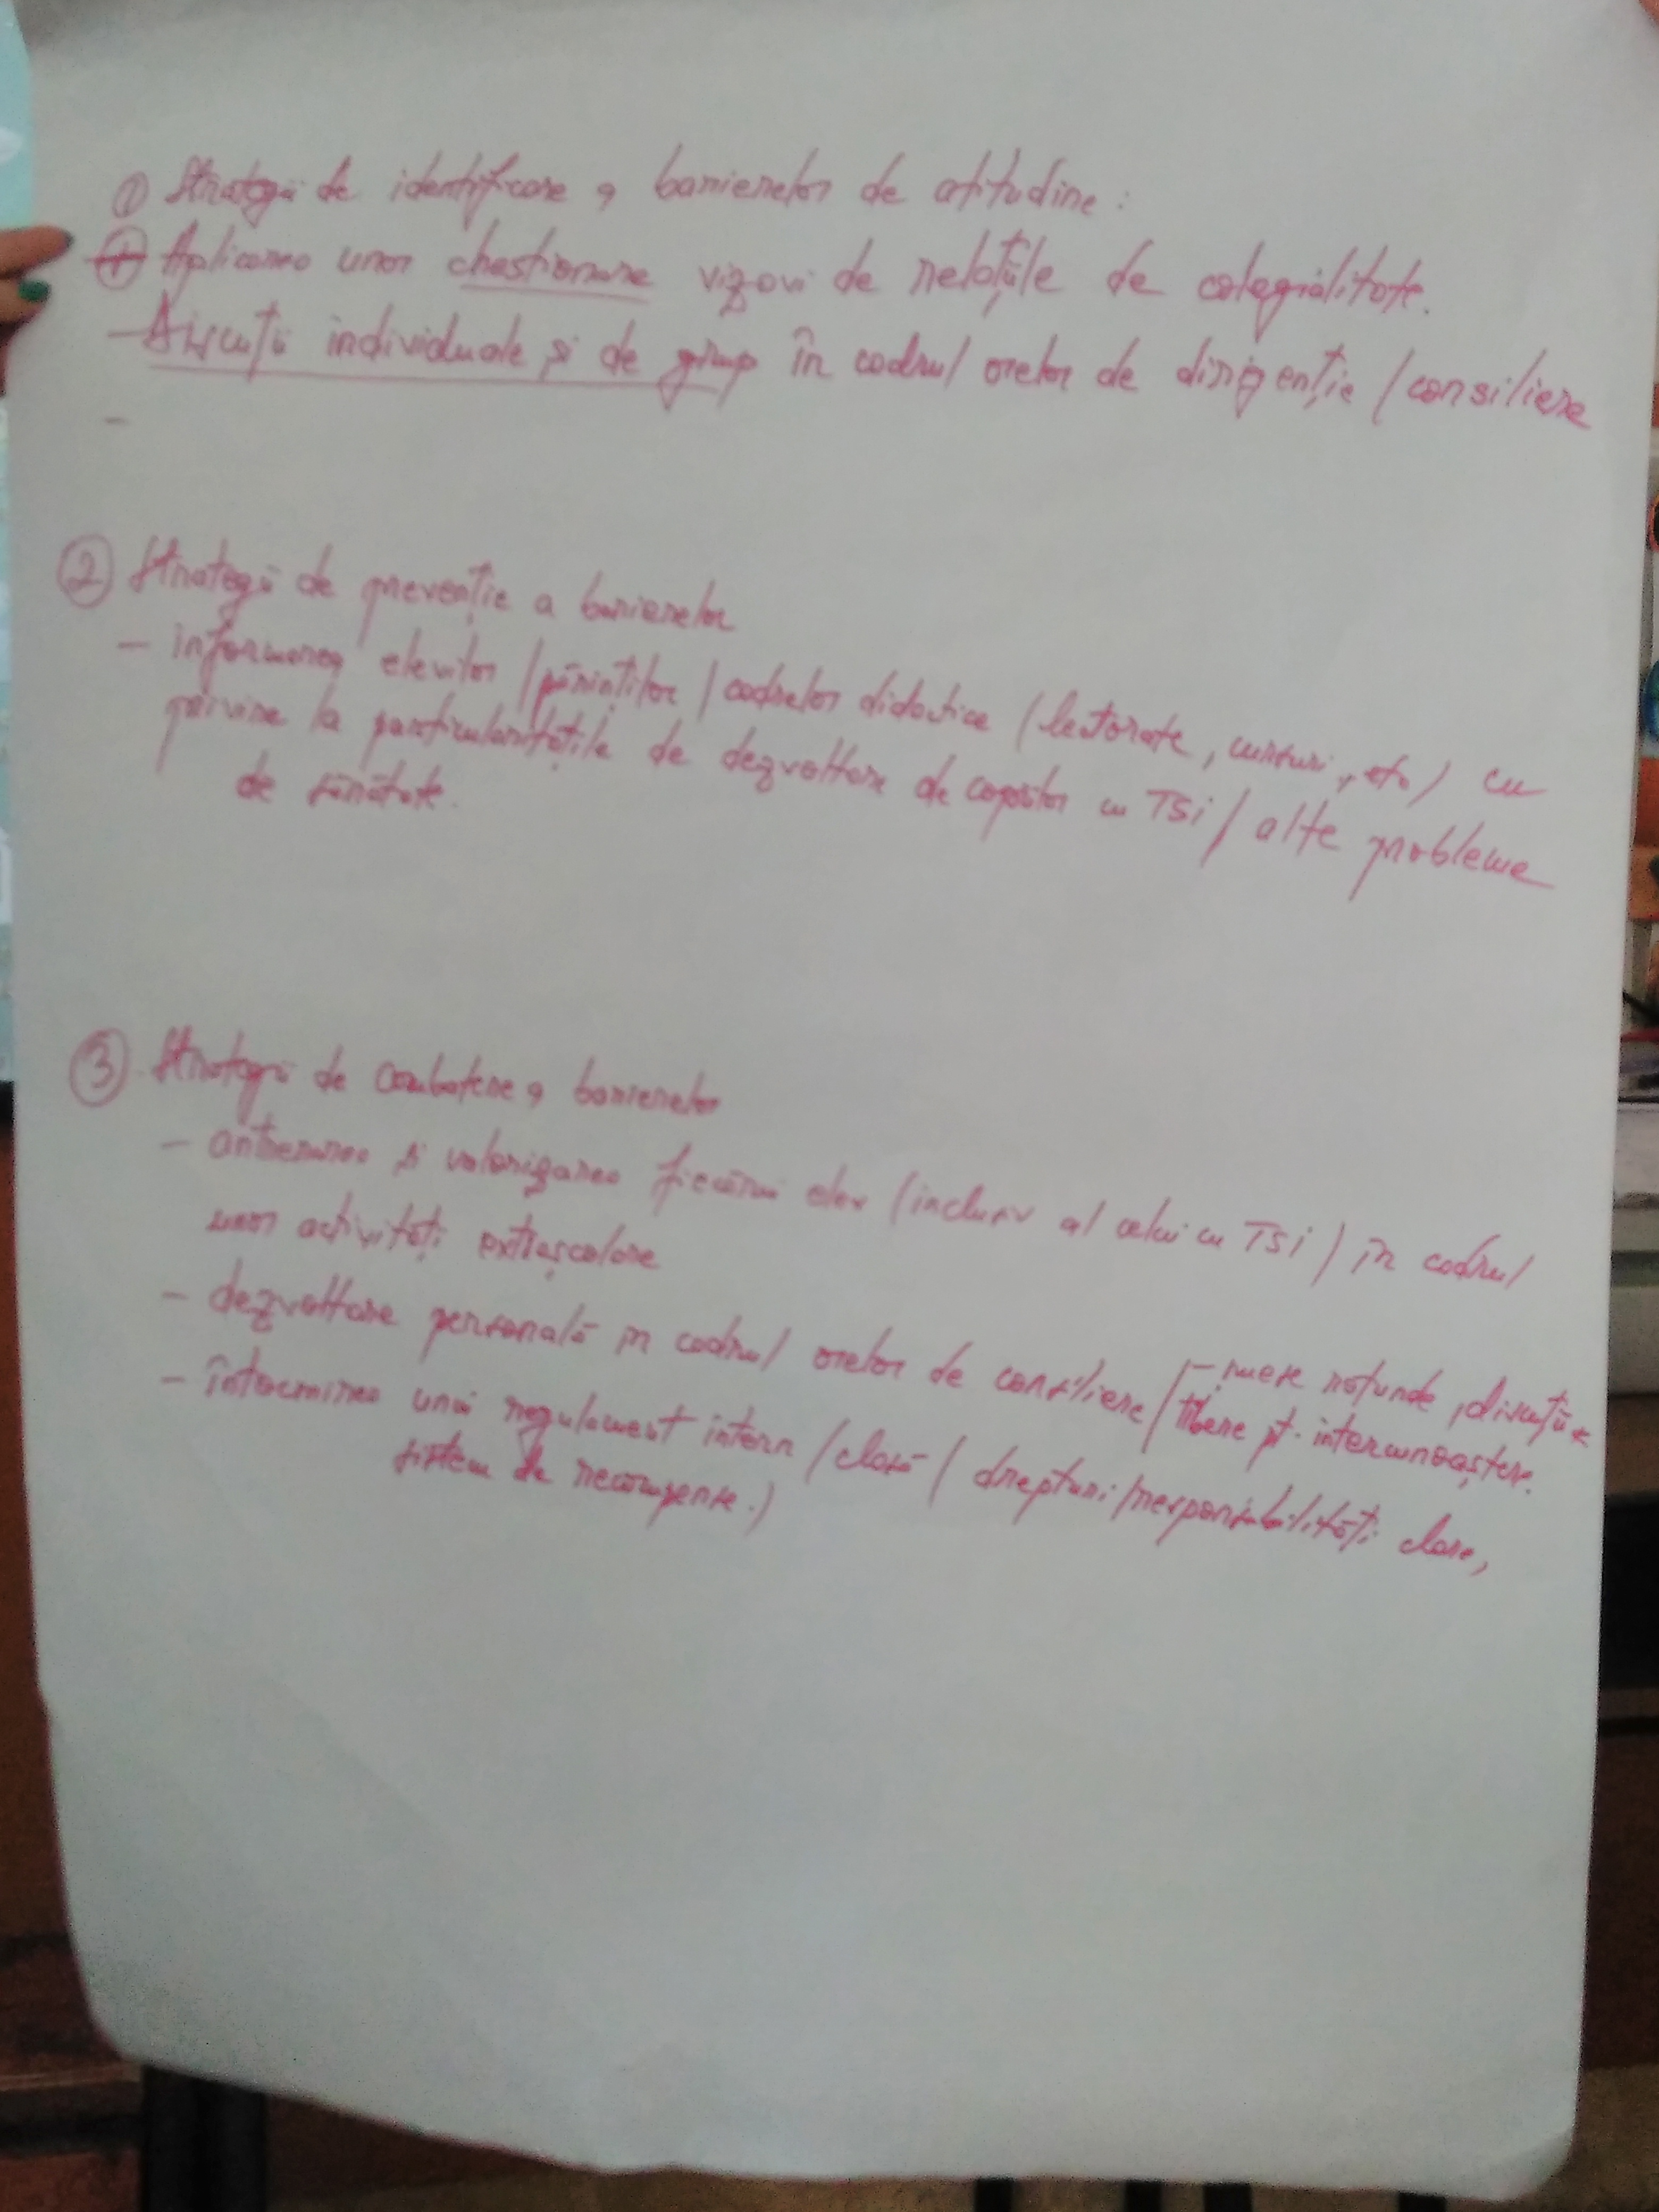 ① Strategii de identificare a barierelor de atitudine:
Aplicarea unor chestionare vizavi de relațiile de colegialitate.
- Discuții individuale și de grup în cadrul orelor de dirigenție / consiliere
-
② Strategii de prevenție a barierelor
- informarea elevilor / părinților / cadrelor didactice (lectorate, cursuri, etc) cu
privire la particularitățile de dezvoltare de copiilor cu TSI / alte probleme
de sănătate.
③ Strategii de combatere a barierelor
- antrenarea și valorizarea fiecărui elev (inclusiv al celui cu TSI) în cadrul
unor activități extrașcolare
- dezvoltare personală în cadrul orelor de consiliere (- mese rotunde, discuții
libere pt. intercunoaștere.
- întocmirea unui regulament intern / clasă / drepturi / responsabilități clare,
sistem de recompense.)